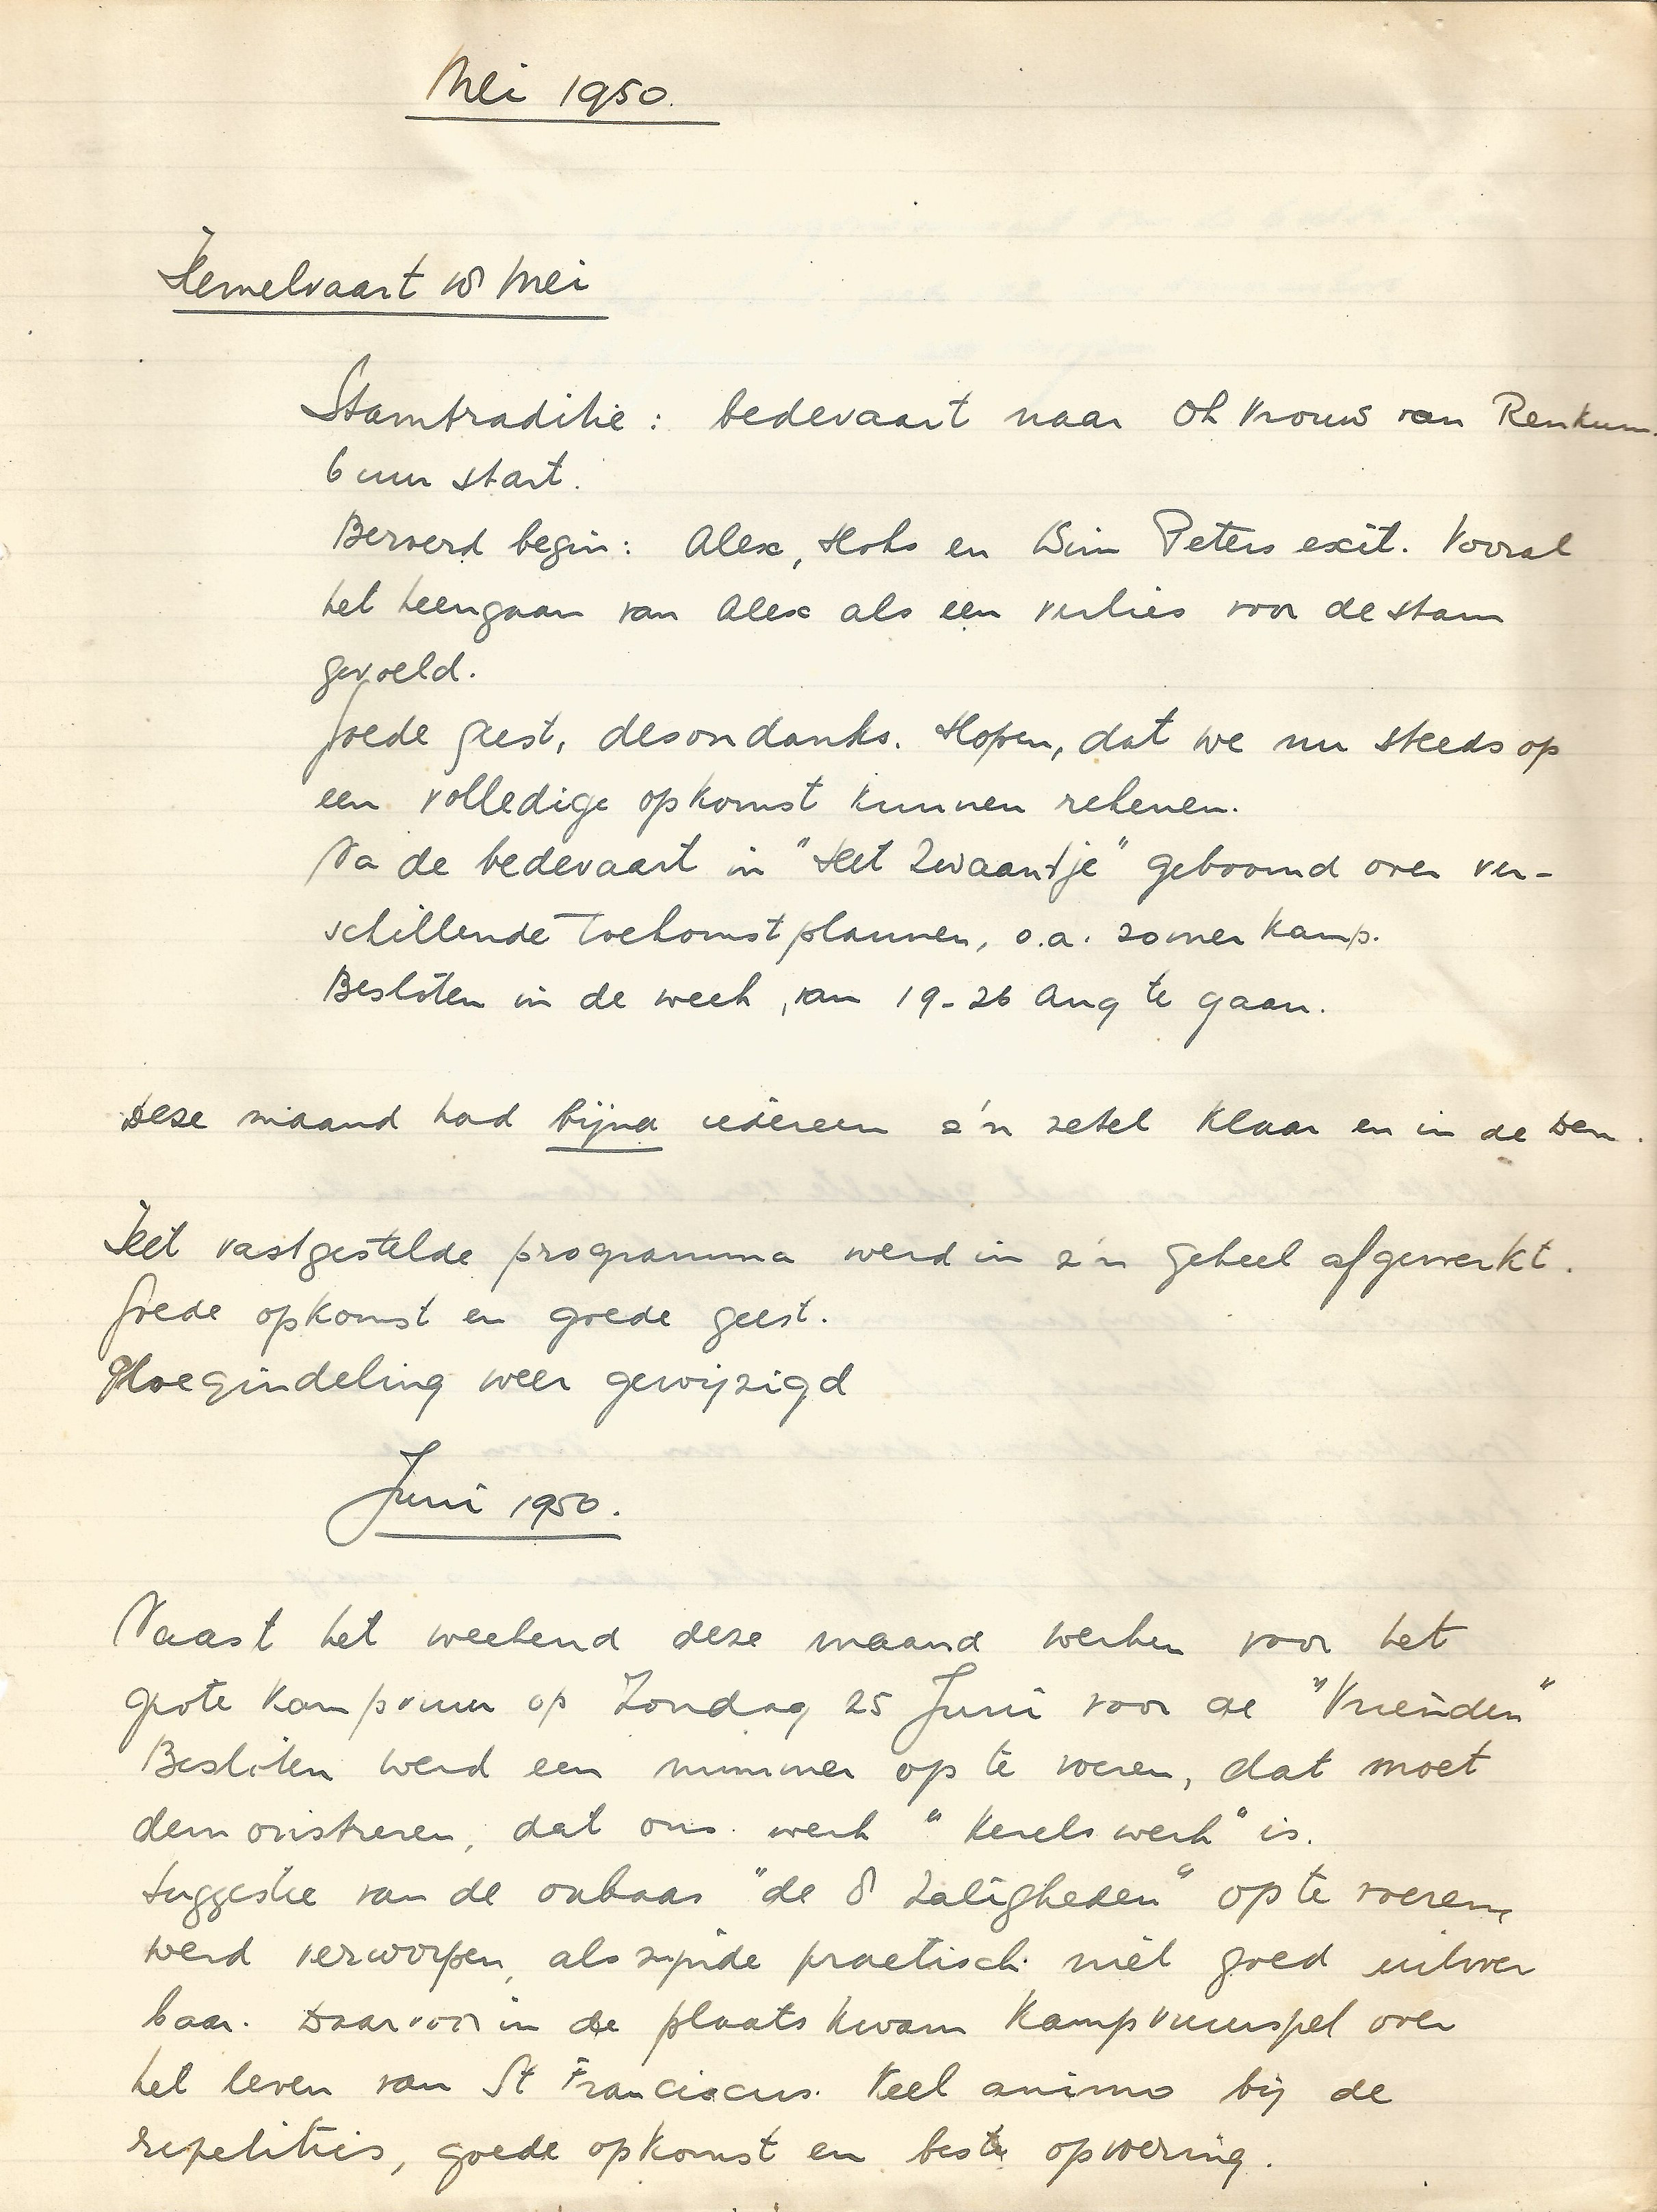 Mei 1950.
Hemelvaart 18 Mei
Stamtraditie: bedevaart naar OL Vrouw van Renkum.
6 uur start.
Beroerd begin: Alex, Hobo en Wim Peters exit. Vooral
het heengaan van Alex als een verlies voor de stam
gevoeld.
Goede geest, desondanks. Hopen, dat we nu steeds op
een volledige opkomst kunnen rekenen.
Na de bedevaart in "Het Zwaantje" geboomd over ver-
schillende toekomstplannen, o.a. zomerkamp.
Besloten in de week van 19-26 Aug te gaan.
Deze maand had bijna iedereen z'n zetel klaar en in de Den.
Het vastgestelde programma werd in z'n geheel afgewerkt.
Goede opkomst en goede geest.
Ploegindeling weer gewijzigd
Juni 1950.
Naast het weekend deze maand werken voor het
grote kampvuur op Zondag 25 Juni voor de "Vrienden"
Besloten werd een nummer op te voeren, dat moet
demonstreren, dat ons werk "Kerelswerk" is.
Suggestie van de oubaas "de 8 Zaligheden" op te voeren,
werd verworpen, als zijnde practisch niet goed uitvoer
baar. Daarvoor in de plaats kwam Kampvuurspel over
het leven van St Franciscus. Veel animo bij de
repetities, goede opkomst en beste opvoering.